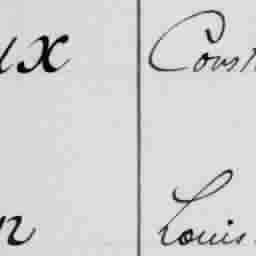 ux Const
n Louis